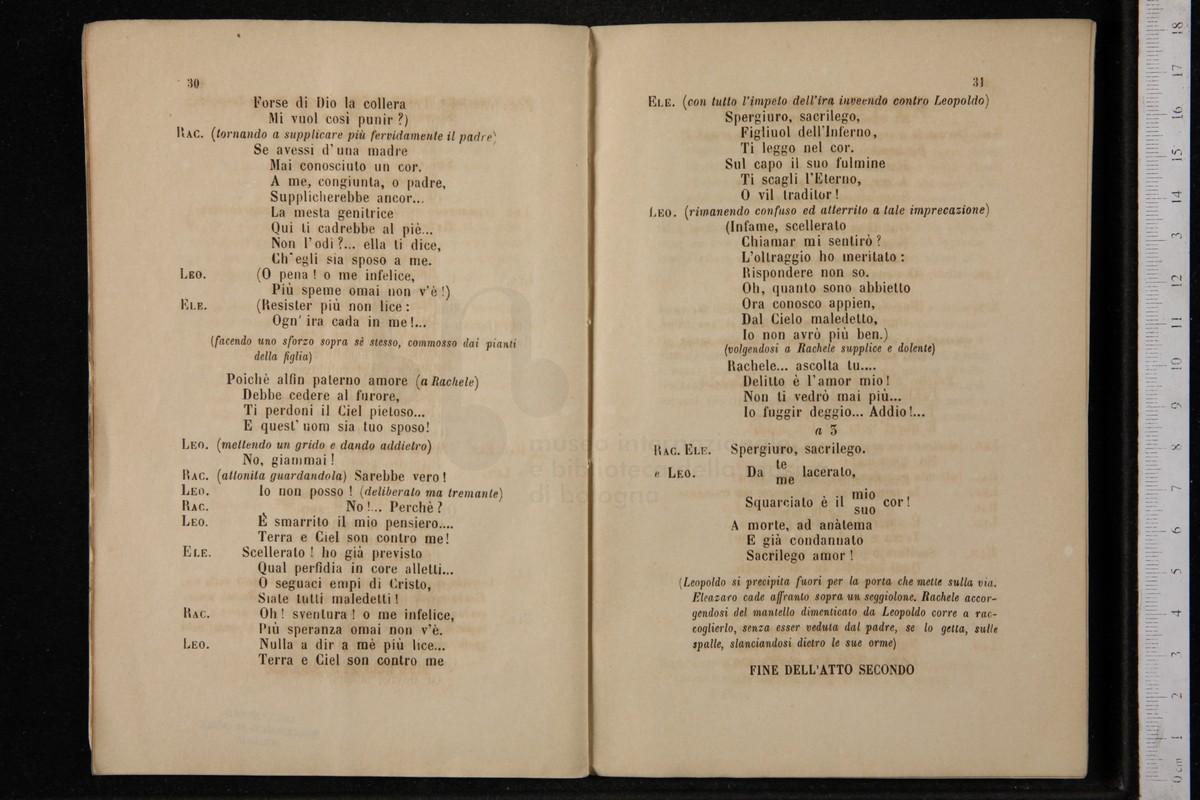 30
Forse di Dio la collera
Mi vuol così punir ?)
RAC. (tornando a supplicare più fervidamente il padre)
Se avessi d'una madre
Mai conosciuto un cor.
A me, congiunta, o padre,
Supplicherebbe ancor...
La mesta genitrice
Qui ti cadrebbe al piè...
Non l'odi ?... ella ti dice,
Ch'egli sia sposo a me.
LEO. (O pena ! o me infelice,
Più speme omai non v'è !)
ELE. (Resister più non lice :
Ogn' ira cada in me !...
(facendo uno sforzo sopra sè stesso, commosso dai pianti
della figlia)
Poichè alfin paterno amore (a Rachele)
Debbe cedere al furore,
Ti perdoni il Ciel pietoso...
E quest' uom sia tuo sposo!
LEO. (mettendo un grido e dando addietro)
No, giammai !
RAC. (attonita guardandola) Sarebbe vero !
LEO. Io non posso ! (deliberato ma tremante)
RAC. No !... Perchè ?
LEO. È smarrito il mio pensiero....
Terra e Ciel son contro me!
ELE. Scellerato ! ho già previsto
Qual perfidia in core alletti...
O seguaci empi di Cristo,
Siate tutti maledetti !
RAC. Oh ! sventura ! o me infelice,
Più speranza omai non v'è.
LEO. Nulla a dir a mè più lice...
Terra e Ciel son contro me
31
ELE. (con tutto l'impeto dell'ira inveendo contro Leopoldo)
Spergiuro, sacrilego,
Figliuol dell'Inferno,
Ti leggo nel cor.
Sul capo il suo fulmine
Ti scagli l'Eterno,
O vil traditor !
LEO. (rimanendo confuso ed atterrito a tale imprecazione)
(Infame, scellerato
Chiamar mi sentirò ?
L'oltraggio ho meritato :
Rispondere non so.
Oh, quanto sono abbietto
Ora conosco appien,
Dal Cielo maledetto,
Io non avrò più ben.)
(volgendosi a Rachele supplice e dolente)
Rachele... ascolta tu....
Delitto è l'amor mio !
Non ti vedrò mai più...
Io fuggir deggio... Addio !...
a 3
RAC. ELE. Spergiuro, sacrilego.
e LEO. Da te me lacerato,
Squarciato è il mio suo cor !
A morte, ad anàtema
E già condannato
Sacrilego amor !
(Leopoldo si precipita fuori per la porta che mette sulla via.
Eleazaro cade affranto sopra un seggiolone. Rachele accor-
gendosi del mantello dimenticato da Leopoldo corre a rac-
coglierlo, senza esser veduta dal padre, se lo getta, sulle
spalle, slanciandosi dietro le sue orme)
FINE DELL'ATTO SECONDO
museo internazionale
e biblioteca della
di bologna
0 cm 1 2 3 4 5 6 7 8 9 10 11 12 13 14 15 16 17 18